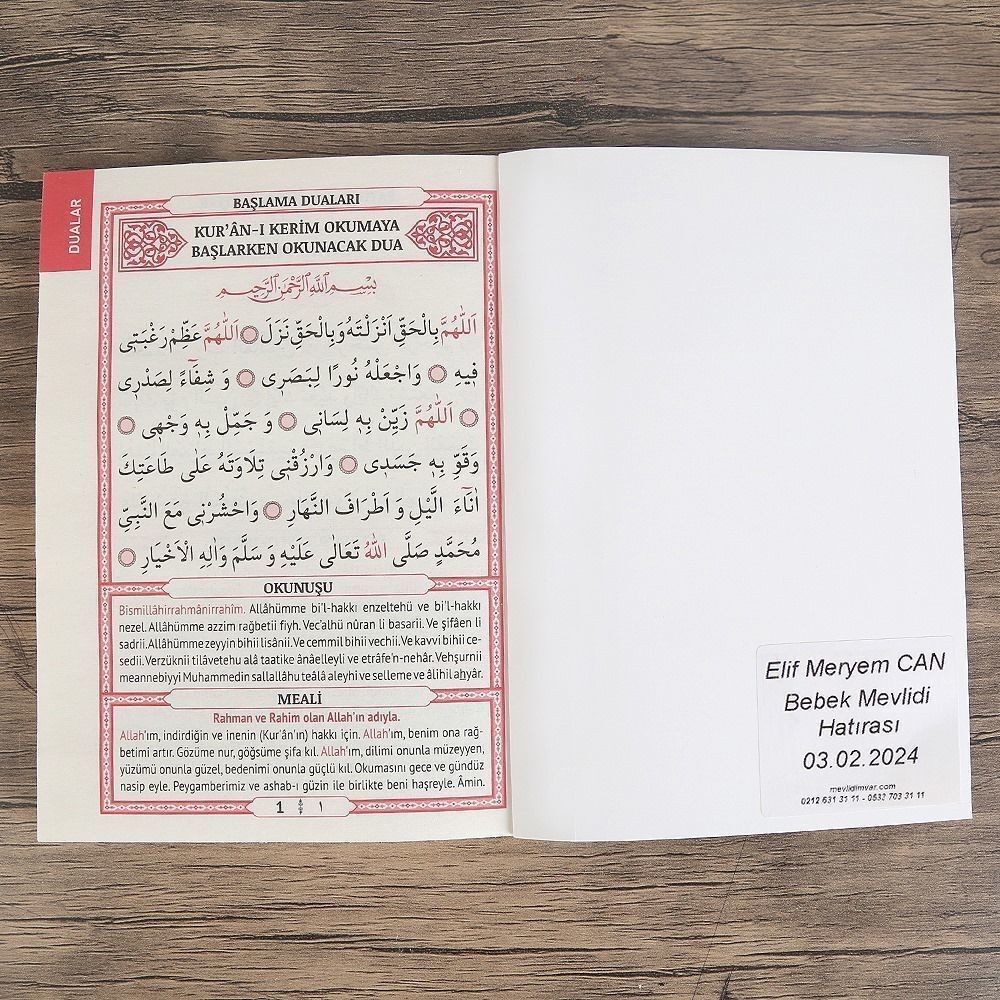 DUALAR
BAŞLAMA DUALARI
KUR'ÂN-I KERİM OKUMAYA
BAŞLARKEN OKUNACAK DUA
بِسْمِ اللّٰهِ الرَّحْمٰنِ الرَّحِيمِ
اَللّٰهُمَّ بِالْحَقِّ اَنْزَلْتَهُ وَبِالْحَقِّ نَزَلَ ۝ اَللّٰهُمَّ عَظِّمْ رَغْبَتِى
فِيهِ ۝ وَاجْعَلْهُ نُورًا لِبَصَرِى ۝ وَ شِفَٓاءً لِصَدْرِى
۝ اَللّٰهُمَّ زَيِّنْ بِهِ لِسَانِى ۝ وَ جَمِّلْ بِهِ وَجْهِى ۝
وَقَوِّ بِهِ جَسَدِى ۝ وَارْزُقْنِى تِلَاوَتَهُ عَلٰى طَاعَتِكَ
اٰنَٓاءَ الَّيْلِ وَ اَطْرَافَ النَّهَارِ ۝ وَاحْشُرْنِى مَعَ النَّبِىِّ
مُحَمَّدٍ صَلَّى اللّٰهُ تَعَالٰى عَلَيْهِ وَ سَلَّمَ وَاٰلِهِ الْاَخْيَارِ ۝
OKUNUŞU
Bismillâhirrahmânirrahîm. Allâhümme bi'l-hakkı enzeltehü ve bi'l-hakkı
nezel. Allâhümme azzim rağbetii fiyh. Vec'alhü nûran li basarii. Ve şifâen li
sadrii. Allâhümme zeyyin bihii lisânii. Ve cemmil bihii vechii. Ve kavvi bihii ce-
sedii. Verzüknii tilâvetehu alâ taatike ânâelleyli ve etrâfe'n-nehâr. Vehşurnii
meannebiyyi Muhammedin sallallâhu teâlâ aleyhi ve selleme ve âlihil ahyâr.
MEALİ
Rahman ve Rahim olan Allah'ın adıyla.
Allah'ım, indirdiğin ve inenin (Kur'ân'ın) hakkı için. Allah'ım, benim ona rağ-
betimi artır. Gözüme nur, göğsüme şifa kıl. Allah'ım, dilimi onunla müzeyyen,
yüzümü onunla güzel, bedenimi onunla güçlü kıl. Okumasını gece ve gündüz
nasip eyle. Peygamberimiz ve ashab-ı güzin ile birlikte beni haşreyle. Âmin.
1 ١
Elif Meryem CAN
Bebek Mevlidi
Hatırası
03.02.2024
mevlidimvar.com
0212 631 31 11 - 0532 703 31 11